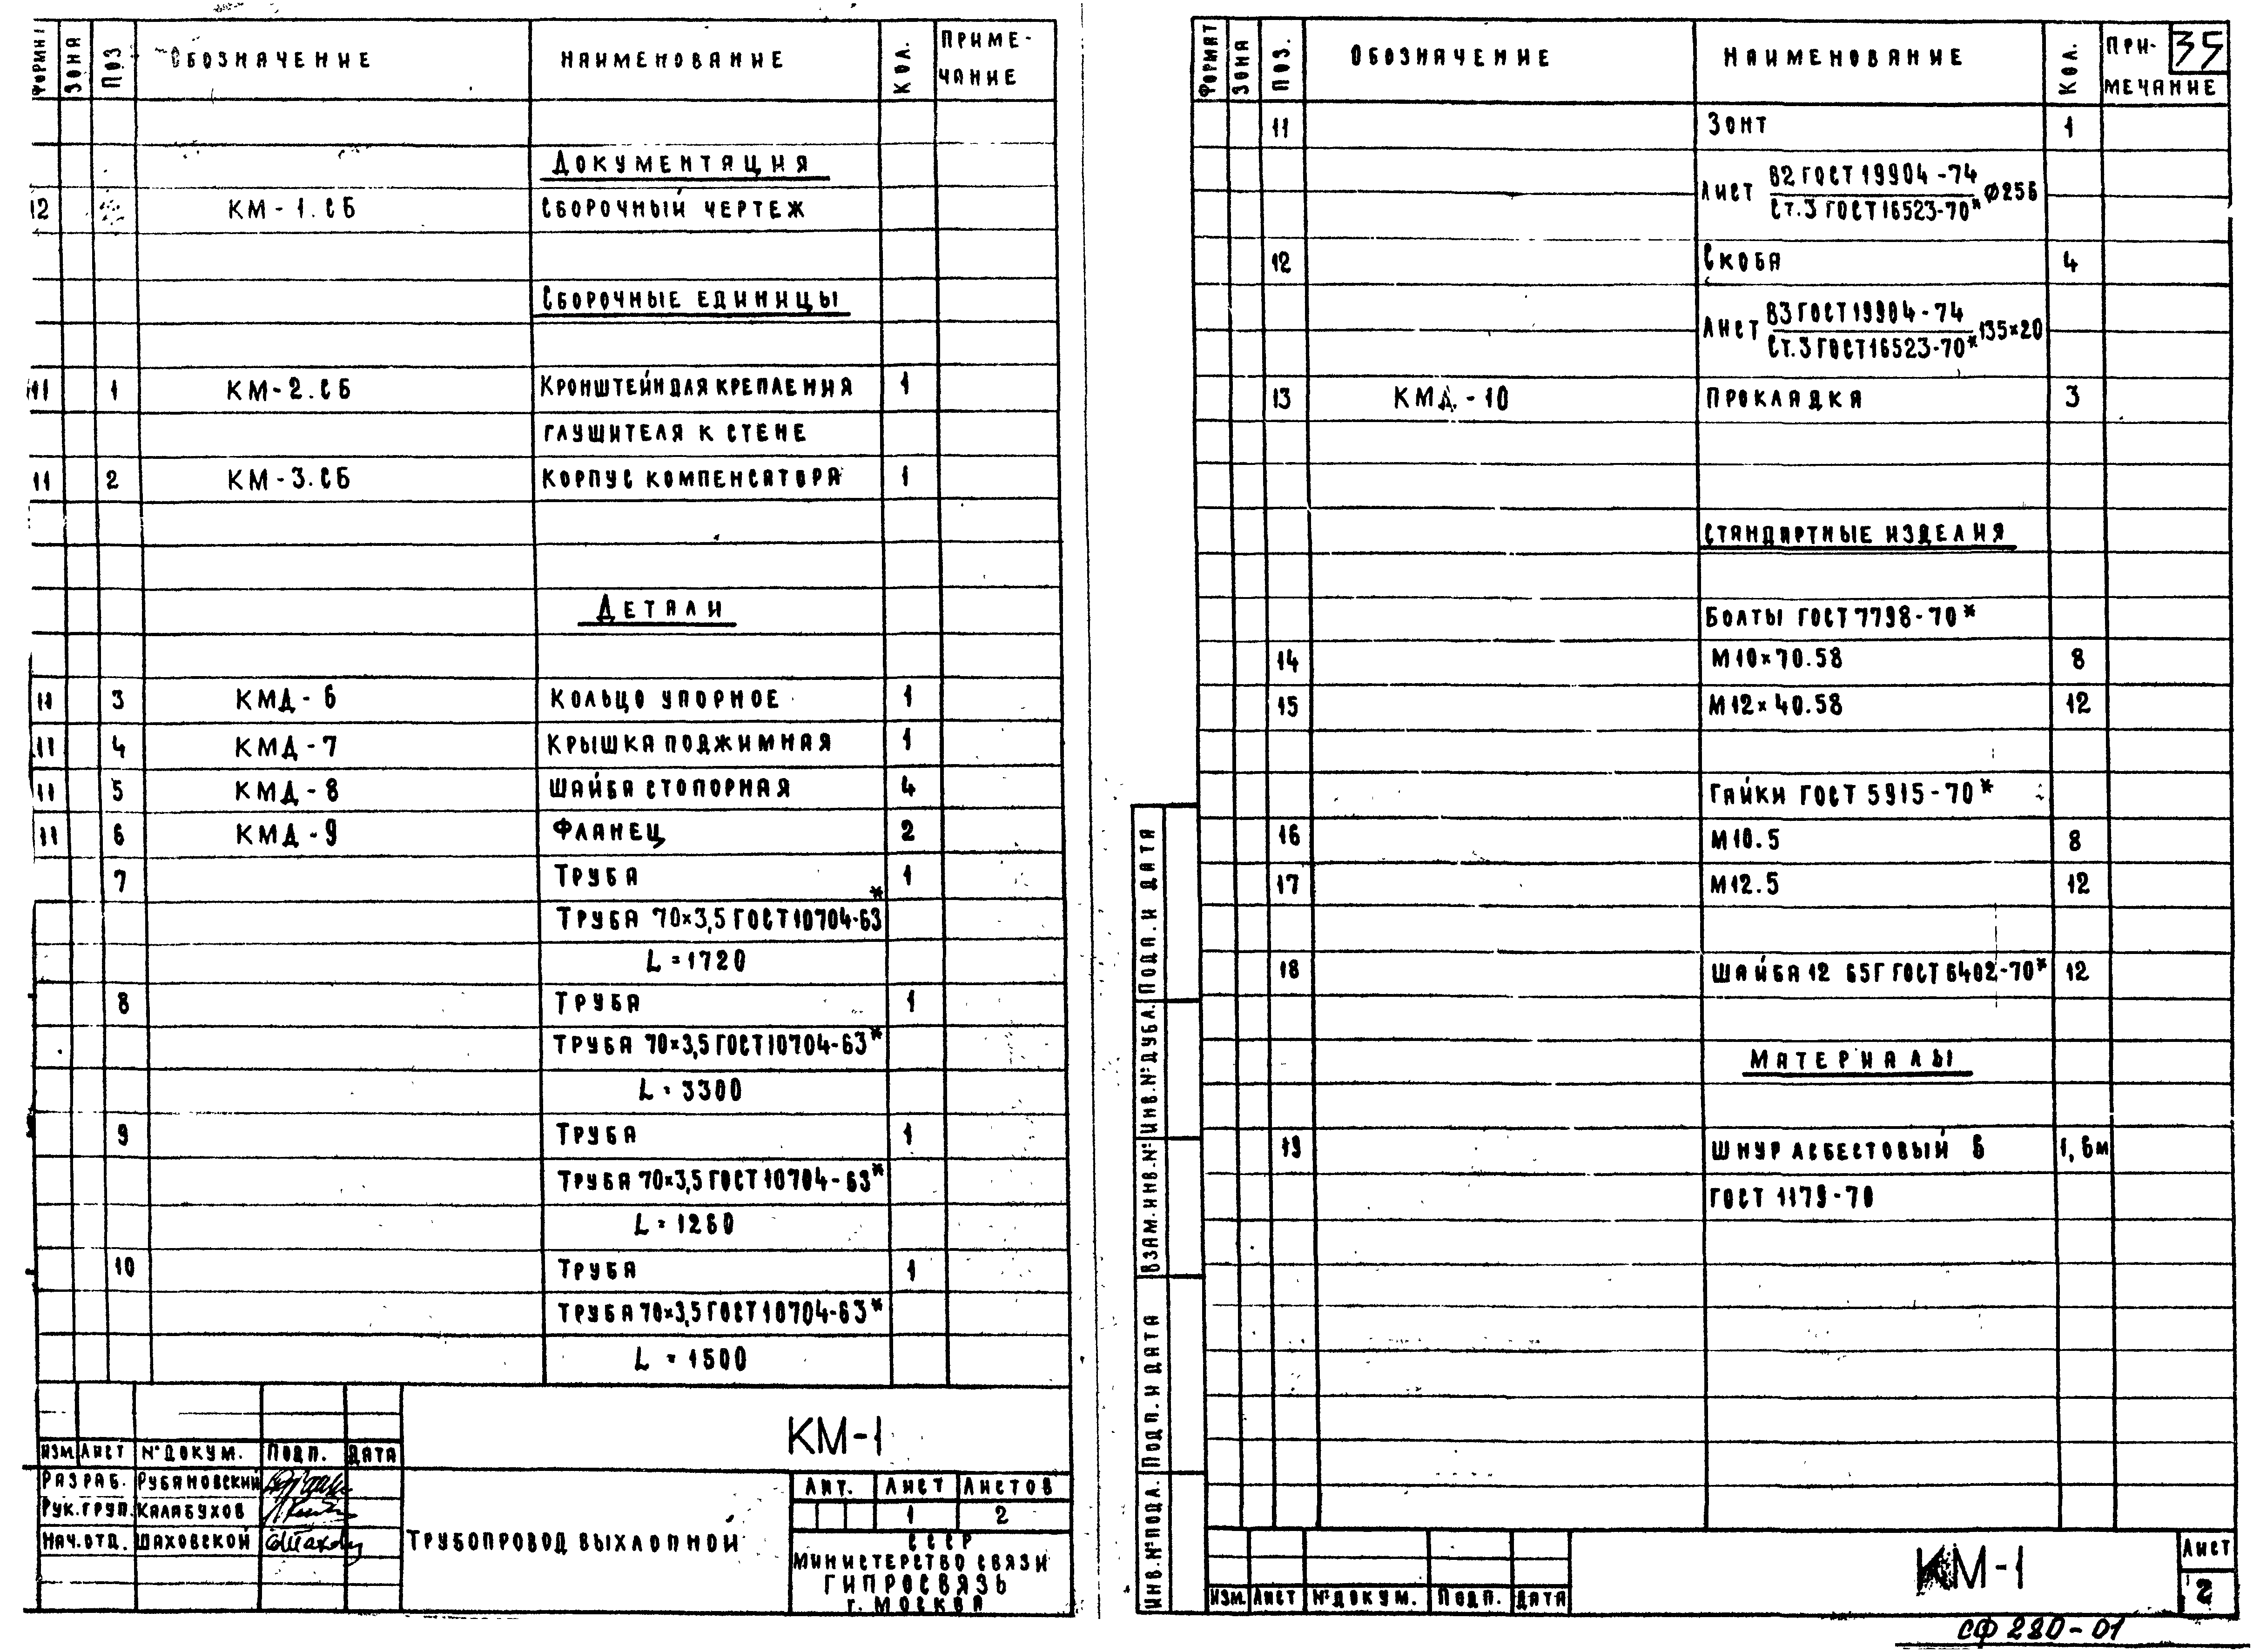 ФОРМАТ ЗОНА ПОЗ ОБОЗНАЧЕНИЕ НАИМЕНОВАНИЕ КОЛ. ПРИМЕ-
ЧАНИЕ
ДОКУМЕНТАЦИЯ
12 КМ-1.СБ СБОРОЧНЫЙ ЧЕРТЕЖ
СБОРОЧНЫЕ ЕДИНИЦЫ
11 1 КМ-2.СБ КРОНШТЕЙН ДЛЯ КРЕПЛЕНИЯ 1
ГЛУШИТЕЛЯ К СТЕНЕ
11 2 КМ-3.СБ КОРПУС КОМПЕНСАТОРА 1
ДЕТАЛИ
11 3 КМД-6 КОЛЬЦО УПОРНОЕ 1
11 4 КМД-7 КРЫШКА ПОДЖИМНАЯ 1
11 5 КМД-8 ШАЙБА СТОПОРНАЯ 4
11 6 КМД-9 ФЛАНЕЦ 2
7 ТРУБА 1
ТРУБА 70×3,5 ГОСТ 10704-63*
L=1720
8 ТРУБА 1
ТРУБА 70×3,5 ГОСТ 10704-63*
L=3300
9 ТРУБА 1
ТРУБА 70×3,5 ГОСТ 10704-63*
L=1260
10 ТРУБА 1
ТРУБА 70×3,5 ГОСТ 10704-63*
L=1500
КМ-1
ИЗМ. ЛИСТ № ДОКУМ. ПОДП. ДАТА
РАЗРАБ. РУБАНОВСКИЙ
РУК.ГРУП. КАЛАБУХОВ
НАЧ.ОТД. ШАХОВСКОЙ
ТРУБОПРОВОД ВЫХЛОПНОЙ
ЛИТ. ЛИСТ ЛИСТОВ
1 2
СССР
МИНИСТЕРСТВО СВЯЗИ
ГИПРОСВЯЗЬ
г. МОСКВА
ФОРМАТ ЗОНА ПОЗ. ОБОЗНАЧЕНИЕ НАИМЕНОВАНИЕ КОЛ. ПРИ-
МЕЧАНИЕ
35
11 ЗОНТ 1
ЛИСТ В2 ГОСТ 19904-74 Ф256
Ст.3 ГОСТ 16523-70*
12 СКОБА 4
ЛИСТ В3 ГОСТ 19904-74 135×20
Ст.3 ГОСТ 16523-70*
13 КМД-10 ПРОКЛАДКА 3
СТАНДАРТНЫЕ ИЗДЕЛИЯ
БОЛТЫ ГОСТ 7798-70*
14 М10×70.58 8
15 М12×40.58 12
ГАЙКИ ГОСТ 5915-70*
16 М10.5 8
17 М12.5 12
18 ШАЙБА 12 65Г ГОСТ 6402-70* 12
МАТЕРИАЛЫ
19 ШНУР АСБЕСТОВЫЙ 6 1,6м
ГОСТ 1179-70
ПОДП. И ДАТА
ИНВ.№ ДУБЛ.
ВЗАМ.ИНВ.№
ПОДП. И ДАТА
ИНВ.№ ПОДЛ.
ИЗМ. ЛИСТ № ДОКУМ. ПОДП. ДАТА
КМ-1
ЛИСТ
2
СФ 280-01